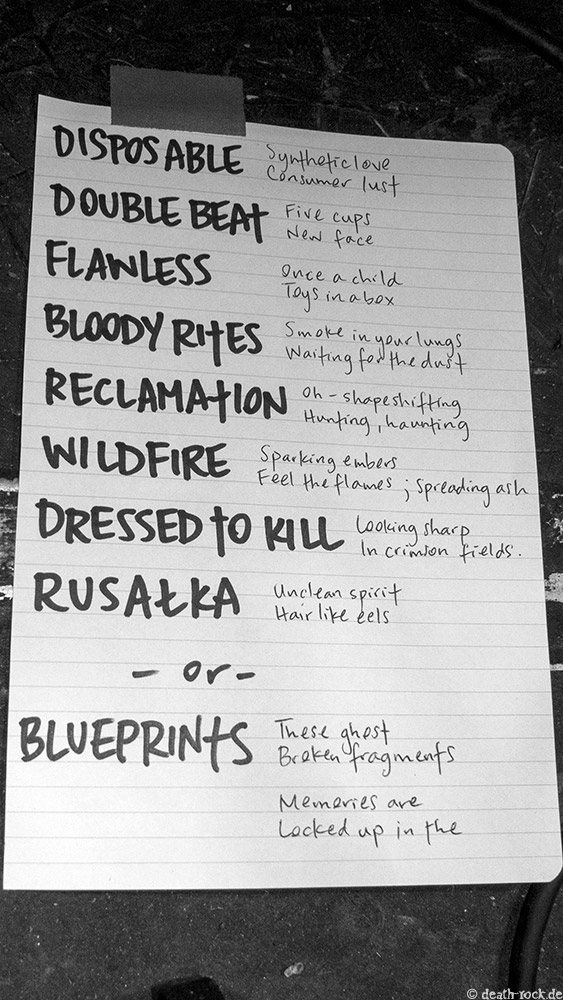 DISPOSABLE Synthetic love
Consumer lust
DOUBLE BEAT Five cups
New face
FLAWLESS Once a child
Toys in a box
BLOODY RITES Smoke in your lungs
Waiting for the dust
RECLAMATION Oh - shapeshifting
Hunting, haunting
WILDFIRE Sparking embers
Feel the flames ; Spreading ash
DRESSED TO KILL Looking sharp
In crimson fields.
RUSAŁKA Unclean spirit
Hair like eels
- or -
BLUEPRINTS These ghost
Broken fragments
Memories are
Locked up in the
© death-rock.de